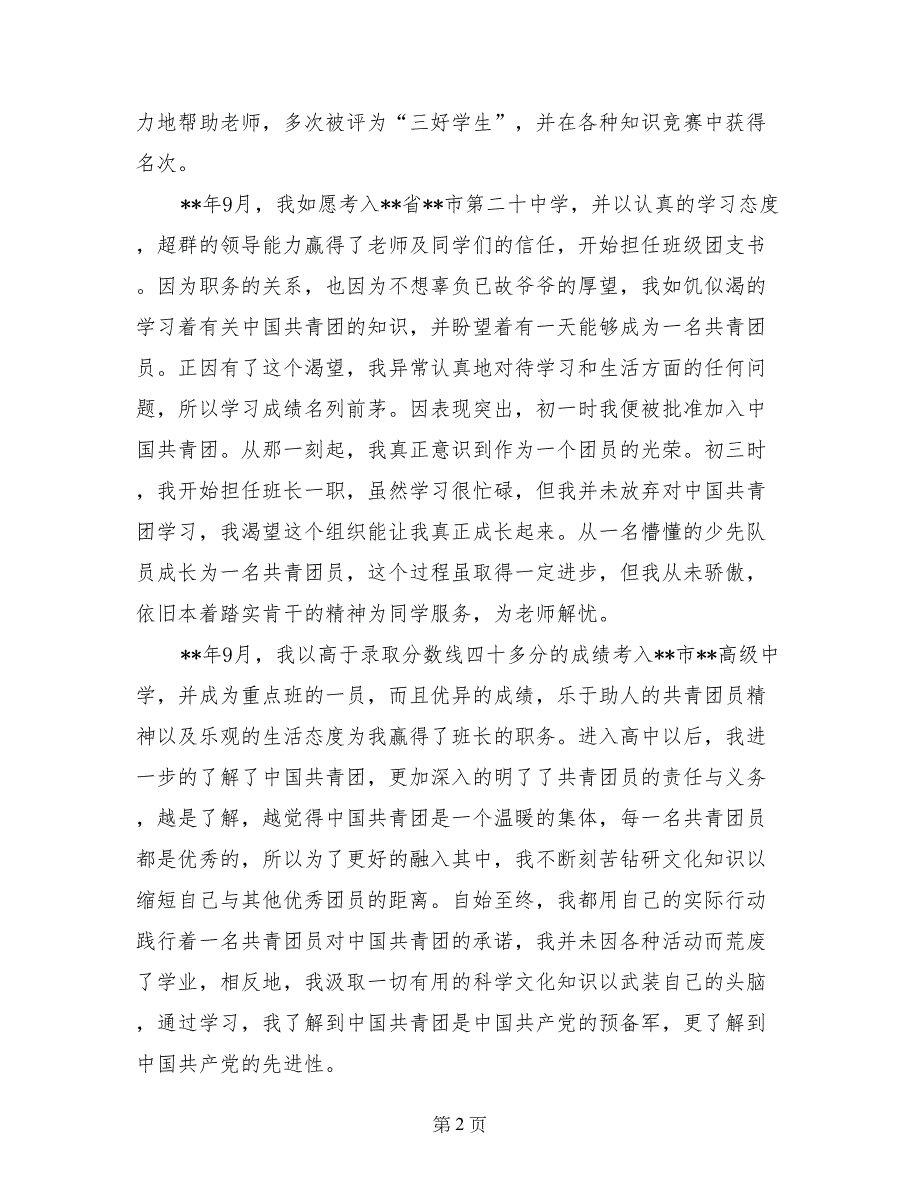 力地帮助老师，多次被评为“三好学生”，并在各种知识竞赛中获得
名次。
**年9月，我如愿考入**省**市第二十中学，并以认真的学习态度
，超群的领导能力赢得了老师及同学们的信任，开始担任班级团支书
。因为职务的关系，也因为不想辜负已故爷爷的厚望，我如饥似渴的
学习着有关中国共青团的知识，并盼望着有一天能够成为一名共青团
员。正因有了这个渴望，我异常认真地对待学习和生活方面的任何问
题，所以学习成绩名列前茅。因表现突出，初一时我便被批准加入中
国共青团。从那一刻起，我真正意识到作为一个团员的光荣。初三时
，我开始担任班长一职，虽然学习很忙碌，但我并未放弃对中国共青
团学习，我渴望这个组织能让我真正成长起来。从一名懵懂的少先队
员成长为一名共青团员，这个过程虽取得一定进步，但我从未骄傲，
依旧本着踏实肯干的精神为同学服务，为老师解忧。
**年9月，我以高于录取分数线四十多分的成绩考入**市**高级中
学，并成为重点班的一员，而且优异的成绩，乐于助人的共青团员精
神以及乐观的生活态度为我赢得了班长的职务。进入高中以后，我进
一步的了解了中国共青团，更加深入的明了了共青团员的责任与义务
，越是了解，越觉得中国共青团是一个温暖的集体，每一名共青团员
都是优秀的，所以为了更好的融入其中，我不断刻苦钻研文化知识以
缩短自己与其他优秀团员的距离。自始至终，我都用自己的实际行动
践行着一名共青团员对中国共青团的承诺，我并未因各种活动而荒废
了学业，相反地，我汲取一切有用的科学文化知识以武装自己的头脑
，通过学习，我了解到中国共青团是中国共产党的预备军，更了解到
中国共产党的先进性。
第 2 页